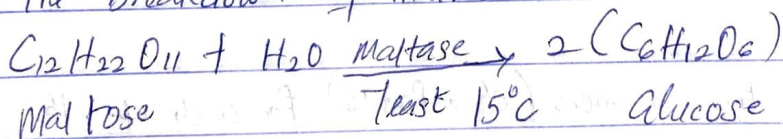 The
C12H22O11 + H2O maltase → 2(C6H12O6)
Maltose Yeast 15°C Glucose